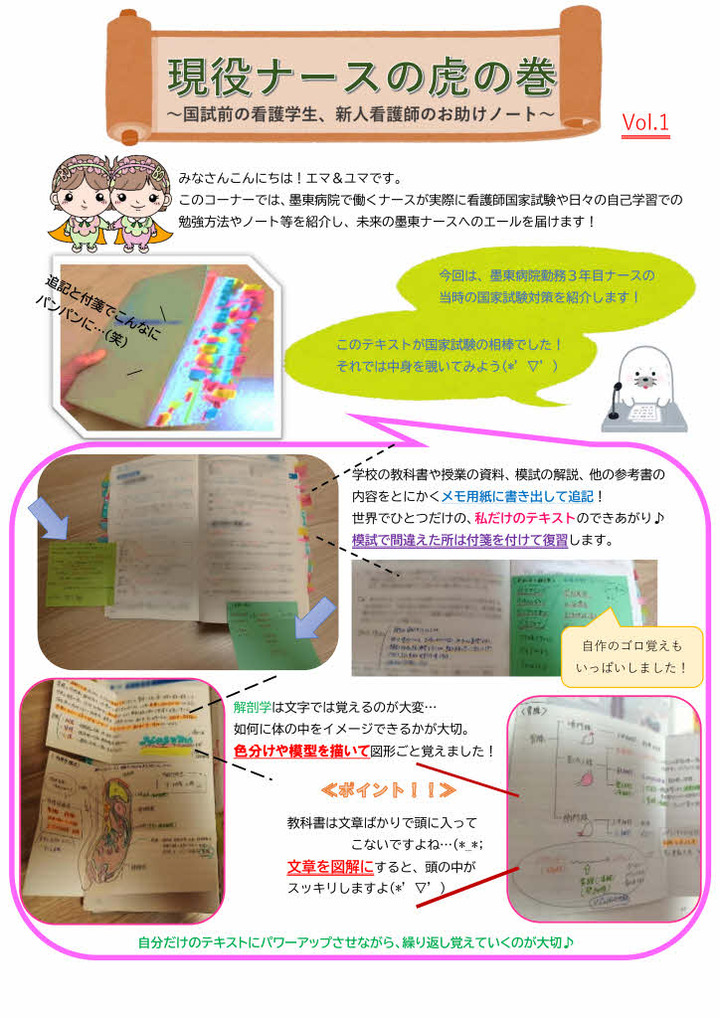 現役ナースの虎の巻
～国試前の看護学生、新人看護師のお助けノート～
Vol.1
みなさんこんにちは！エマ＆ユマです。
このコーナーでは、墨東病院で働くナースが実際に看護師国家試験や日々の自己学習での
勉強方法やノート等を紹介し、未来の墨東ナースへのエールを届けます！
追記と付箋でこんなに
パンパンに…（笑）
今回は、墨東病院勤務３年目ナースの
当時の国家試験対策を紹介します！
このテキストが国家試験の相棒でした！
それでは中身を覗いてみよう(*'▽')
学校の教科書や授業の資料、模試の解説、他の参考書の
内容をとにかくメモ用紙に書き出して追記！
世界でひとつだけの、私だけのテキストのできあがり♪
模試で間違えた所は付箋を付けて復習します。
自作のゴロ覚えも
いっぱいしました！
解剖学は文字では覚えるのが大変…
如何に体の中をイメージできるかが大切。
色分けや模型を描いて図形ごと覚えました！
≪ポイント！！≫
教科書は文章ばかりで頭に入って
こないですよね…(*_*;
文章を図解にすると、頭の中が
スッキリしますよ(*'▽')
自分だけのテキストにパワーアップさせながら、繰り返し覚えていくのが大切♪